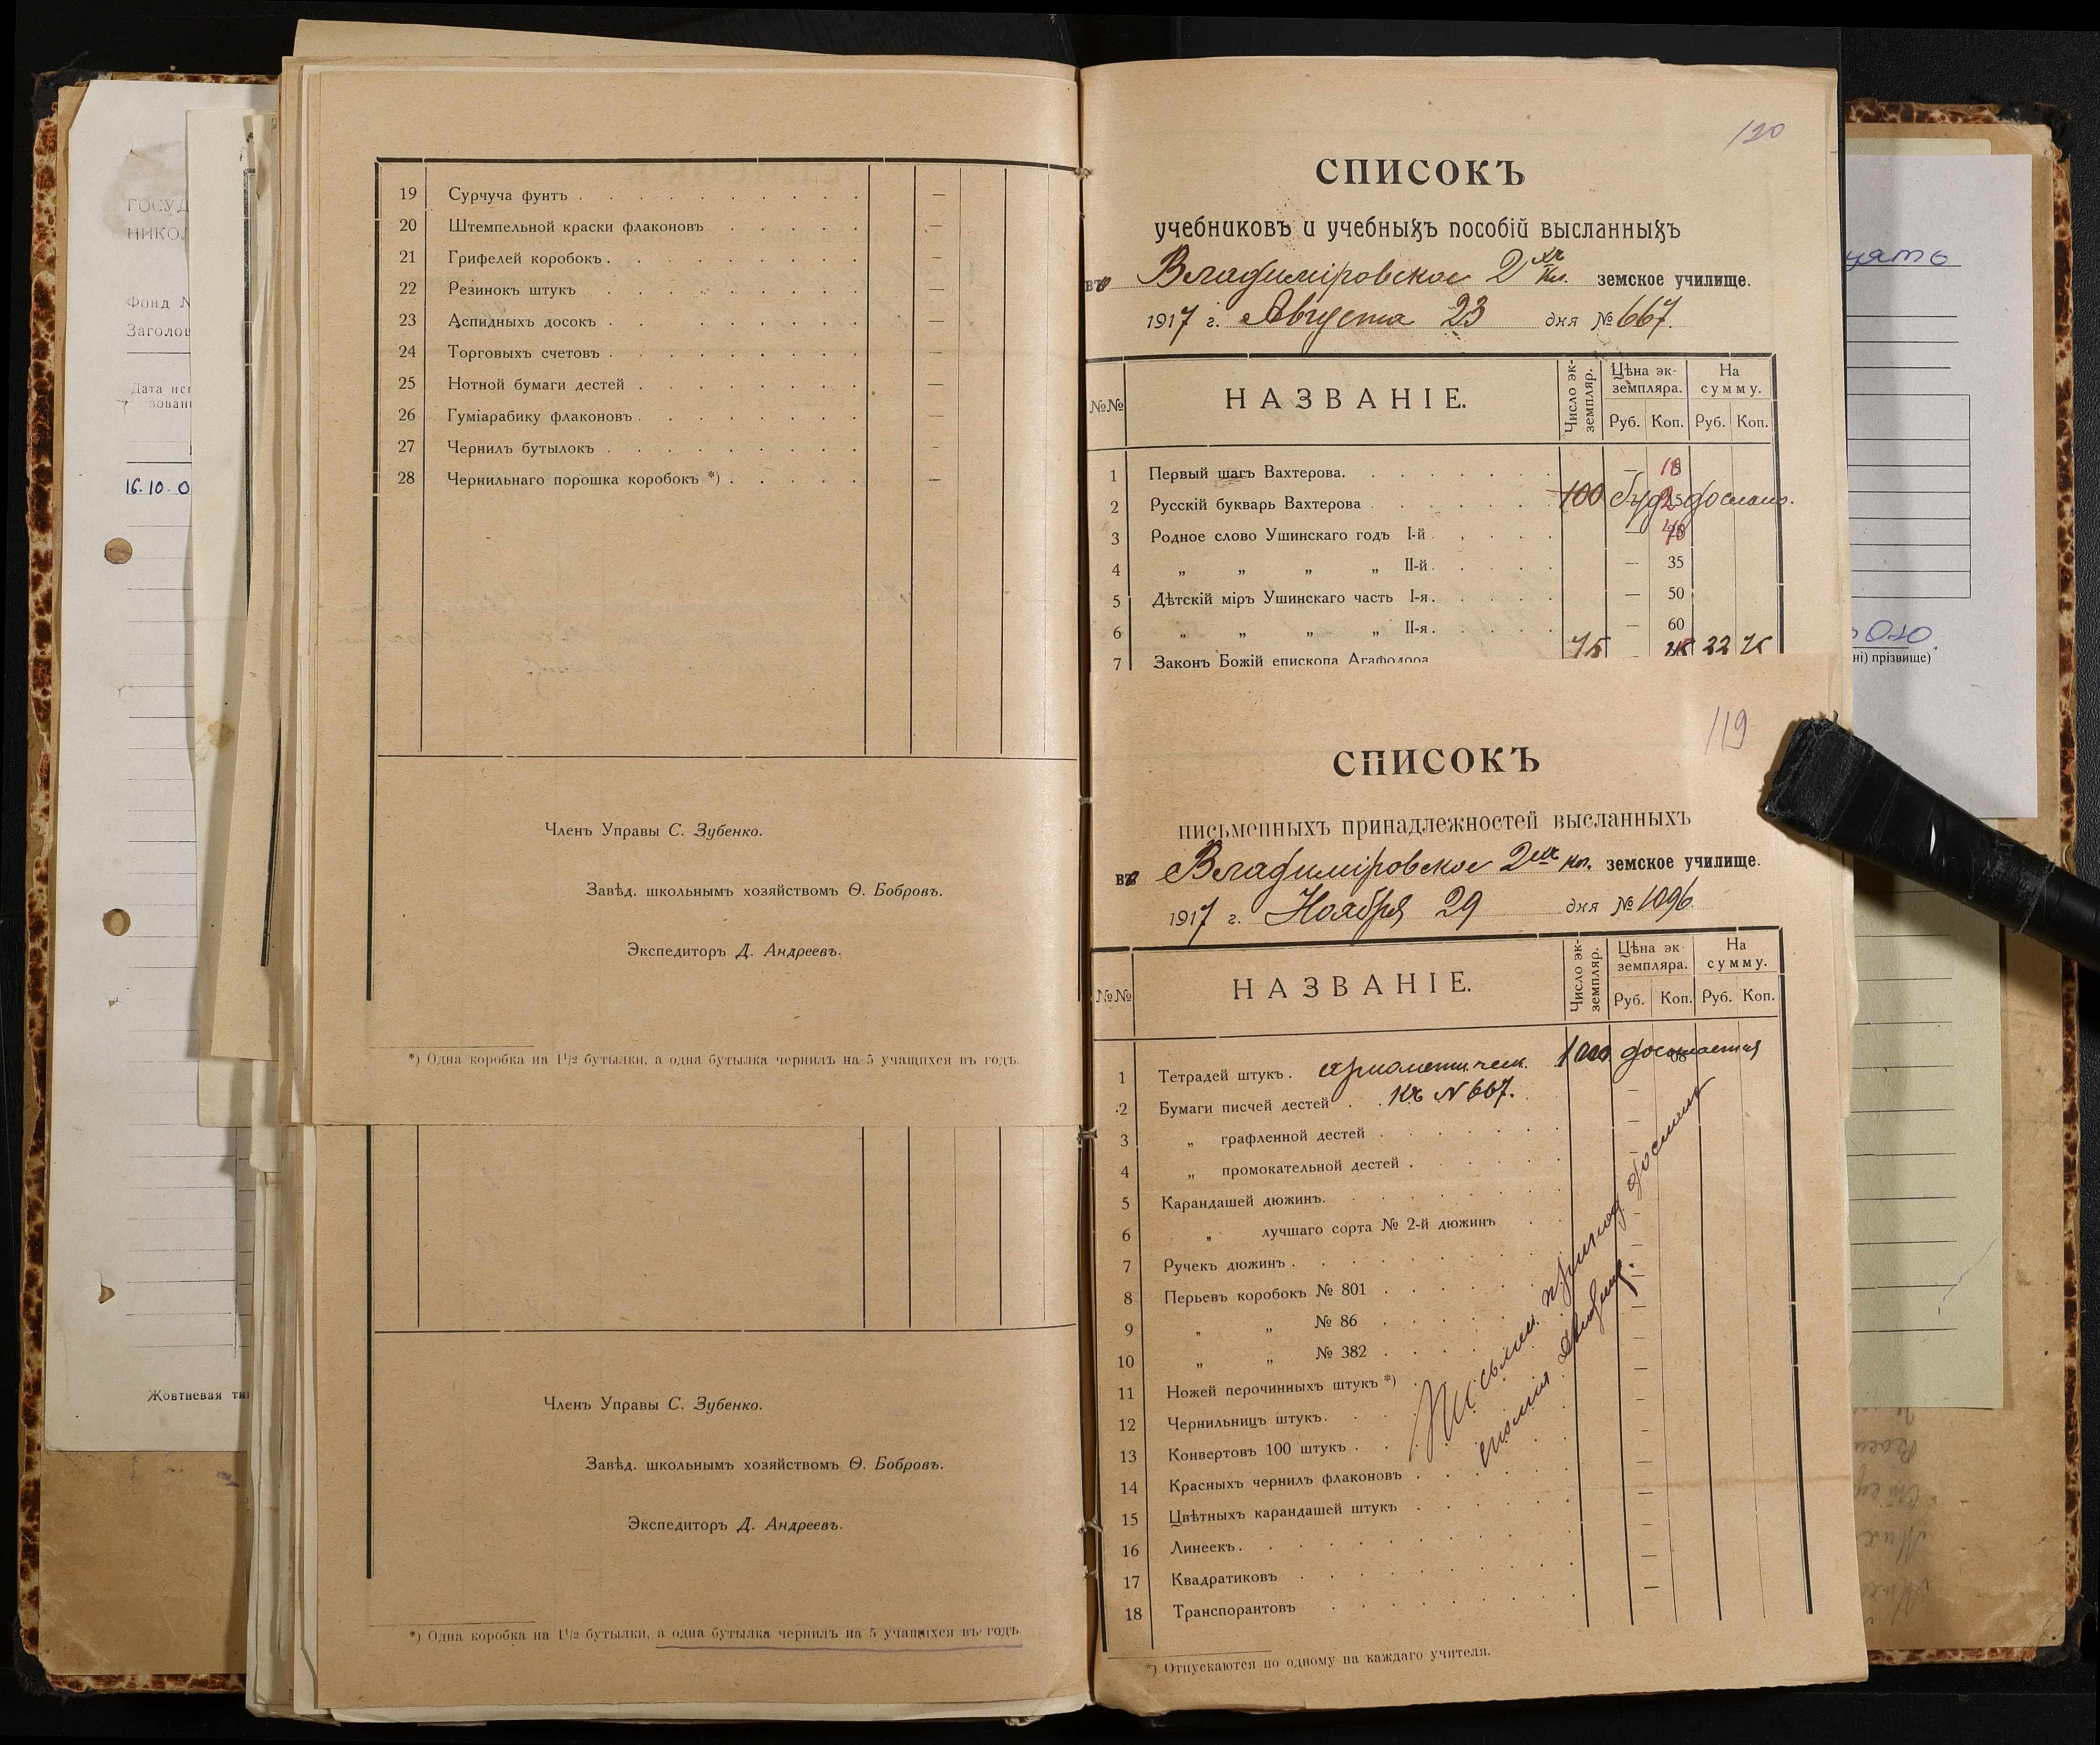 19 Сурчуча фунтъ . . . . . . . . . . —
20 Штемпельной краски флаконовъ . . . . . —
21 Грифелей коробокъ . . . . . . . . . —
22 Резинокъ штукъ . . . . . . . . . —
23 Аспидныхъ досокъ . . . . . . . . . —
24 Торговыхъ счетовъ . . . . . . . . . —
25 Нотной бумаги дестей . . . . . . . . —
26 Гуміарабику флаконовъ . . . . . . . —
27 Чернилъ бутылокъ . . . . . . . . . —
28 Чернильнаго порошка коробокъ *) . . . . . —
Членъ Управы С. Зубенко.
Завѣд. школьнымъ хозяйствомъ Ѳ. Бобровъ.
Экспедиторъ Д. Андреевъ.
*) Одна коробка на 1 1/2 бутылки, а одна бутылка чернилъ на 5 учащихся въ годъ.
Членъ Управы С. Зубенко.
Завѣд. школьнымъ хозяйствомъ Ѳ. Бобровъ.
Экспедиторъ Д. Андреевъ.
*) Одна коробка на 1 1/2 бутылки, а одна бутылка чернилъ на 5 учащихся въ годъ.
120
СПИСОКЪ
учебниковъ и учебныхъ пособій высланныхъ
во Владиміровское 2хъ кл. земское училище.
1917 г. Августа 23 дня № 667.
№№ НАЗВАНІЕ. Число экземпляр. Цѣна экземпляра. На сумму.
Руб. Коп. Руб. Коп.
1 Первый шагъ Вахтерова. . . . . . . . —
2 Русскій букварь Вахтерова . . . . . . 100 дослано.
3 Родное слово Ушинскаго годъ I-й . . . . . —
4 „ „ „ „ II-й . . . . . — 35
5 Дѣтскій міръ Ушинскаго часть I-я . . . . . — 50
6 „ „ „ „ II-я . . . . . — 60
7 Законъ Божій епископа Агафодора 75 — 22
119
СПИСОКЪ
письменныхъ принадлежностей высланныхъ
во Владиміровское 2хъ кл. земское училище.
1917 г. Ноября 29 дня № 1096.
№№ НАЗВАНІЕ. Число экземпляр. Цѣна экземпляра. На сумму.
Руб. Коп. Руб. Коп.
1 Тетрадей штукъ . ариѳметическ. досылается
2 Бумаги писчей дестей . . Къ № 667. —
3 „ графленной дестей . . . . . . . —
4 „ промокательной дестей . . . . . . —
5 Карандашей дюжинъ. . . . . . . . . —
6 „ лучшаго сорта № 2-й дюжинъ . . —
7 Ручекъ дюжинъ . . . . . . . . . —
8 Перьевъ коробокъ № 801 . . . . . . —
9 „ „ № 86 . . . . . . —
10 „ „ № 382 . . . . . . —
11 Ножей перочинныхъ штукъ *) . . . . . —
12 Чернильницъ штукъ. . . . . . . . —
13 Конвертовъ 100 штукъ . . . . . . . —
14 Красныхъ чернилъ флаконовъ . . . . . . —
15 Цвѣтныхъ карандашей штукъ . . . . . . —
16 Линеекъ . . . . . . . . . . —
17 Квадратиковъ . . . . . . . . . —
18 Транспорантовъ . . . . . . . . —
Письмен. принад.
*) Отпускаются по одному на каждаго учителя.
Фонд №
16.10.0
Жовтневая ти
ні) прізвище)